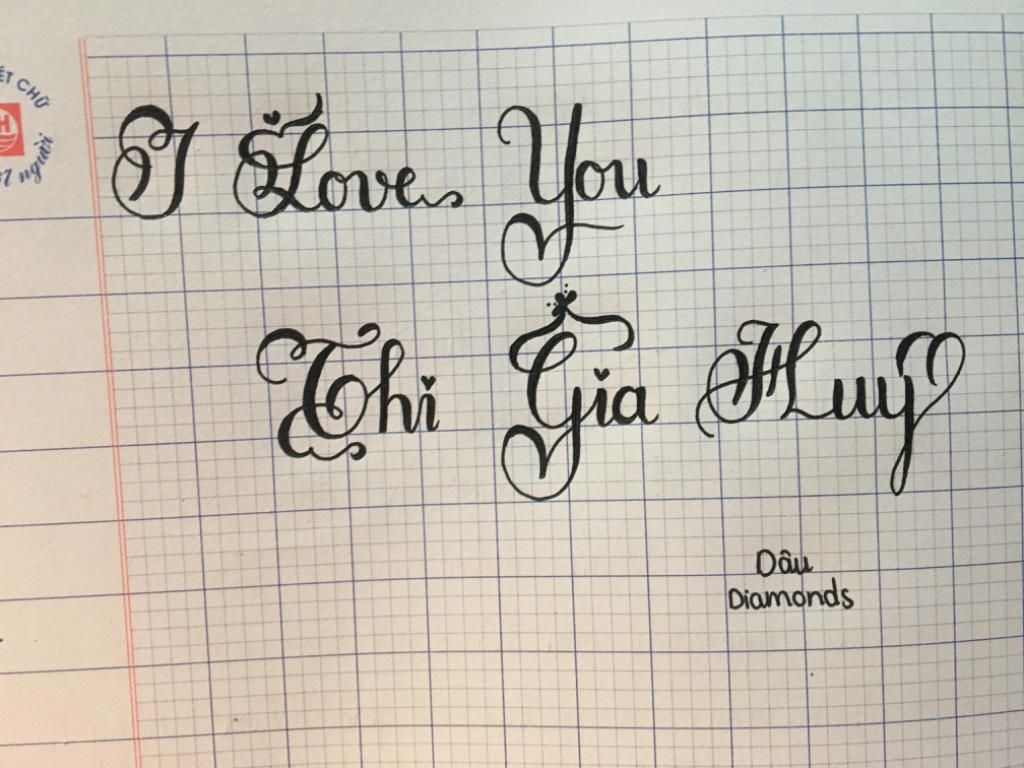 ẾT CHỮ
H
người
I Love You
Thi Gia Huy
Dâu
Diamonds